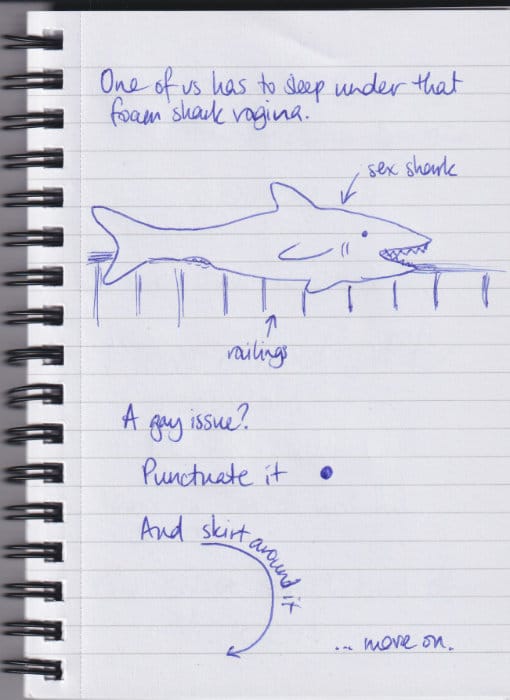 One of us has to sleep under that
foam shark vagina.
sex shark
railings
A gay issue?
Punctuate it
And skirt around it
... move on.